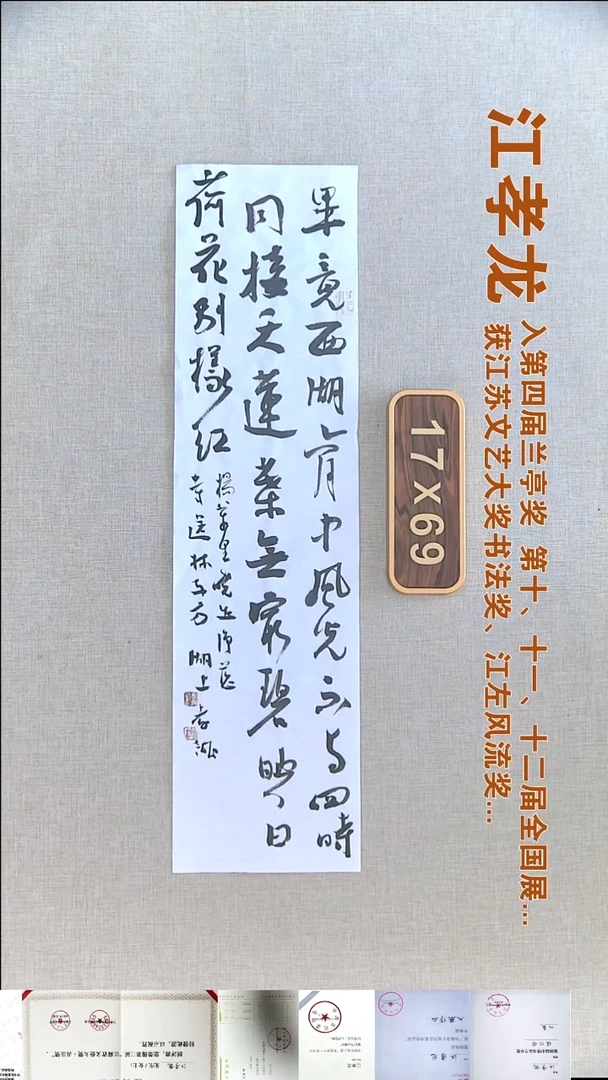 江孝龙
入第四届兰亭奖 第十、十一、十二届全国展...
获江苏文艺大奖书法奖、江左风流奖...
17x69
畢竟西湖六月中風光不与四時
同接天蓮葉無窮碧映日
荷花别樣红
楊萬里曉出净慈
寺送林子方 湖上孝龍